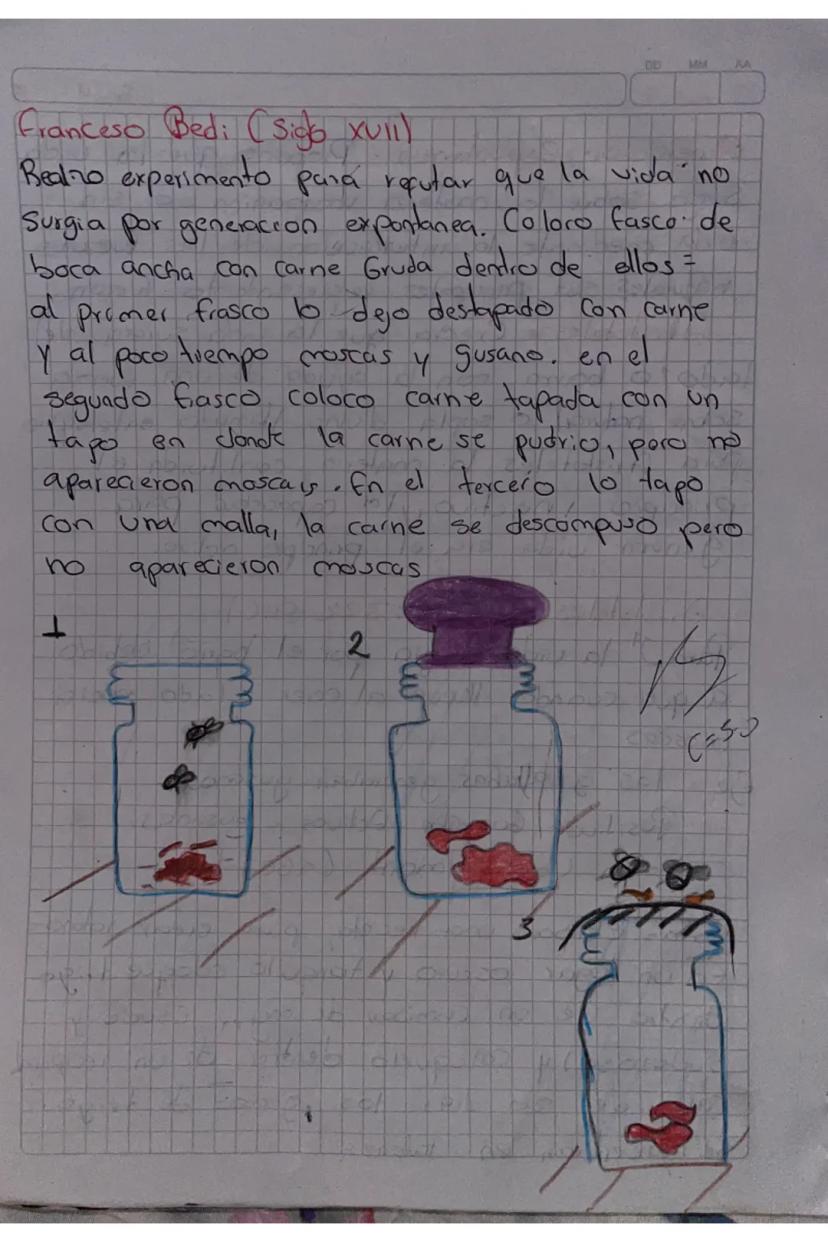 DD MM AA
Franceso Redi (Siglo XVII)
Realizo experimento para refutar que la vida no
surgia por generacion expontanea. Coloco fasco de
boca ancha con carne Cruda dentro de ellos=
al primer frasco lo dejo destapado con carne
y al poco tiempo moscas y gusano. en el
segundo frasco coloco carne tapada con un
tapo en donde la carne se pudrio, pero no
aparecieron moscas. En el tercero lo tapo
con una malla, la carne se descompuso pero
no aparecieron moscas
1
2
3